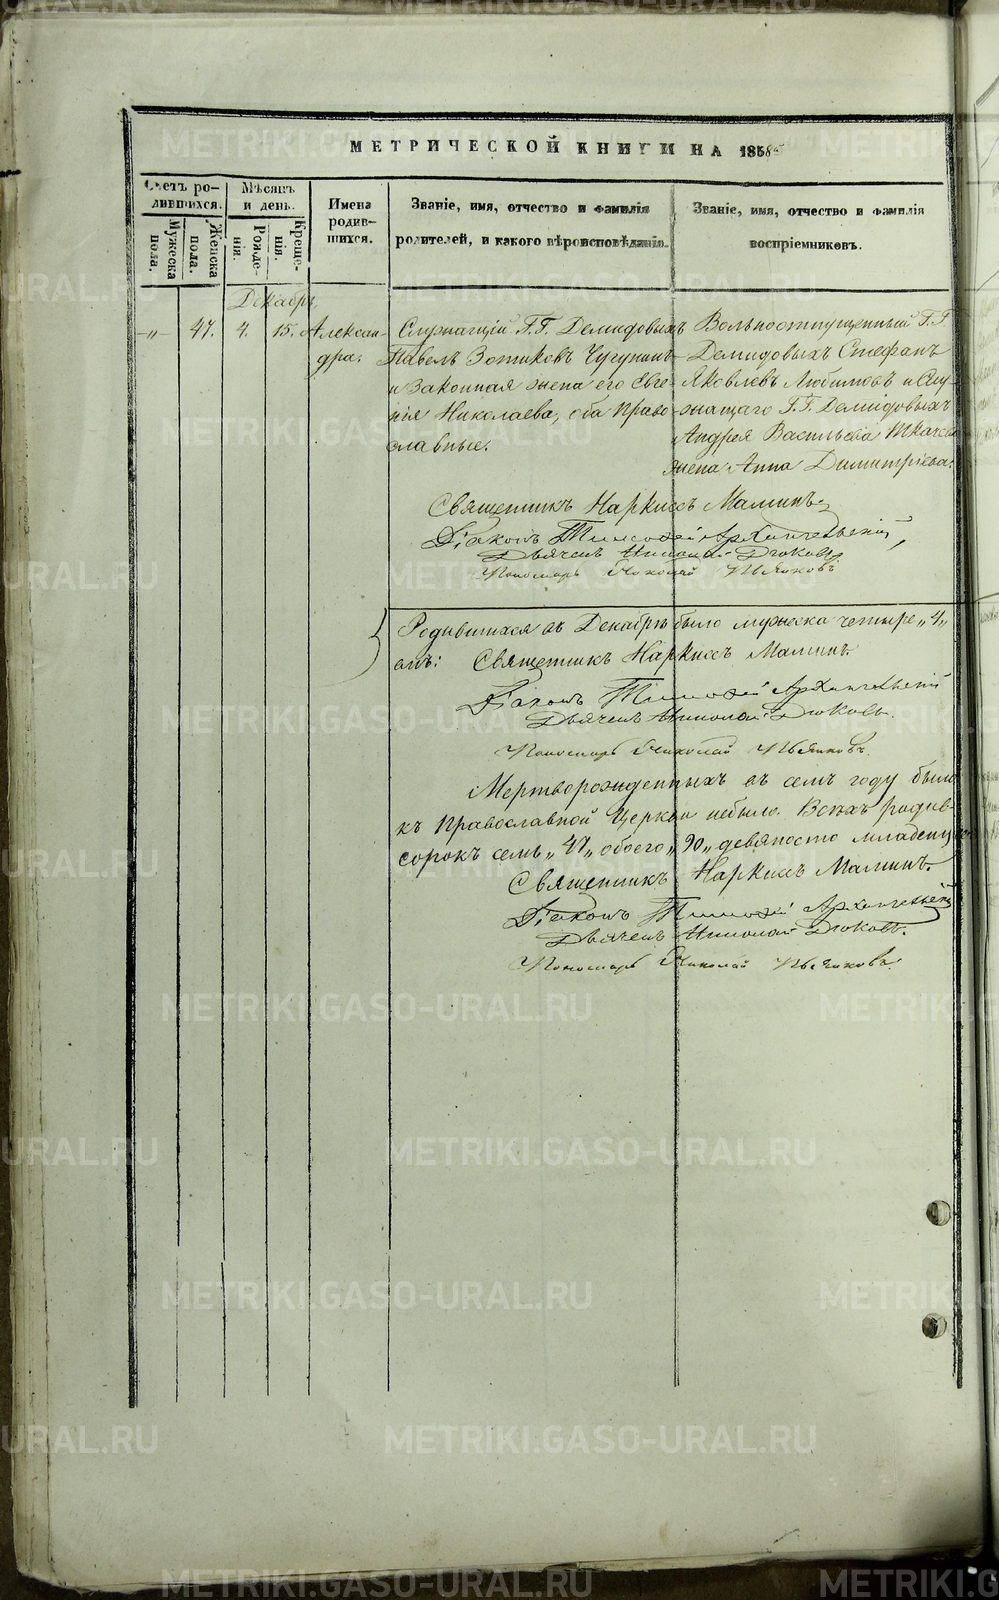 МЕТРИЧЕСКОЙ КНИГИ НА 1858
Счетъ родившихся.
Мужеска пола.
Женска пола.
Мѣсяцъ и день.
Рожденія.
Крещенія.
Имена родившихся.
Званіе, имя, отчество и фамилія
родителей, и какого вѣроисповѣданія.
Званіе, имя, отчество и фамилія
воспріемниковъ.
Декабрь
-„- 47. 4. 15. Александра.
Служащій Г.Г. Демидовыхъ
Павелъ Зотиковъ Чугунинъ
и законная жена его Евге-
нія Николаева, оба право-
славные.
Вольноотпущенный Г.Г.
Демидовыхъ Стефанъ
Яковлевъ Любимовъ и слу-
жащаго Г.Г. Демидовыхъ
Андрея Васильева
жена Анна Димитріева.
Священникъ Наркисъ Маминъ.
Діаконъ Тимофей Архангельскій
Дьячекъ Николай Дюковъ
Пономарь Николай
Родившихся въ Декабрѣ было мужеска четыре „4„
Священникъ Наркисъ Маминъ.
Діаконъ Тимофей Архангельскій
Дьячекъ Николай Дюковъ.
Пономарь Николай
Мертворожденныхъ въ семъ году
къ православной церкви небыло. Всѣхъ родив-
сорокъ семь „47„ обоего „90„ девяносто младенц
Священникъ Наркисъ Маминъ.
Діаконъ Тимофей Архангельскій
Дьячекъ Николай Дюковъ.
Пономарь Николай
METRIKI.GASO-URAL.RU